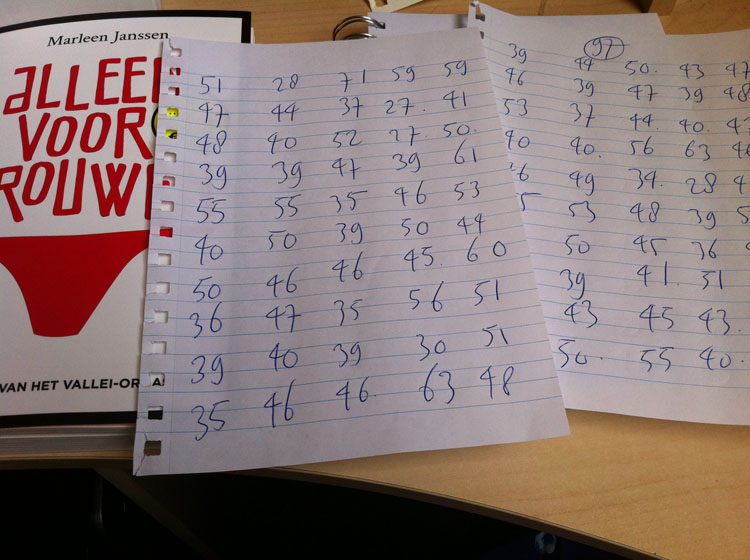 Marleen Janssen
ALLEE
VOOR
ROUWE
VAN HET VALLEI-OR
51 28 71 59 59
47 44 37 27. 41
48 40 52 27 50.
39 39 47 39 61
55 55 35 46 53
40 50 39 50 44
50 46 46 45. 60
36 47 35 56 51
39 40 39 30 51
35 46 46. 63 48
97
39 44 50. 43 47
46 39 47 39 48
53 37 44. 40.
40 40. 56 63
49 34. 28
53 48 39
50 45 36
39 41. 51
43 45 43.
50. 55 40.